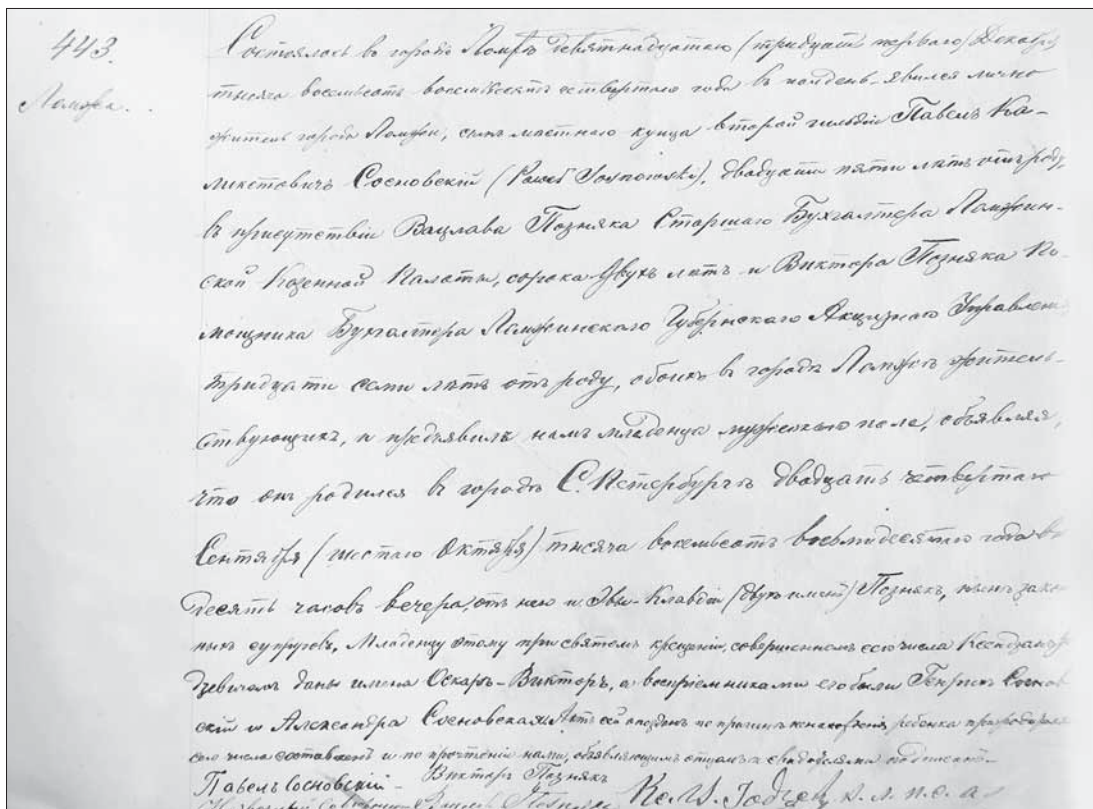 443.
Ломжа.
Состоялось в городе Ломже девятнадцатаго (тридцать перваго) Декабря
тысяча восемьсотъ восемьдесятъ четвертаго года въ полдень. явился лично
житель города Ломжи, сынъ местнаго купца второй гильдiи Павелъ Ка-
ликстовичъ Сосновскiй (Paweł Sosnowski), двадцати пяти лѣтъ отъ роду,
въ присутствiи Вацлава Позняка Старшаго Бухгалтера Ломжин-
ской Казенной Палаты, сорока двухъ лѣтъ и Виктора Позняка По-
мощника Бухгалтера Ломжинскаго Губернскаго Акцизнаго Управленi
тридцати семи лѣтъ отъ роду, обоихъ въ городѣ Ломжѣ житель-
ствующихъ, и предъявилъ намъ младенца мужескаго пола, объявляя,
что онъ родился въ городѣ С. Петербургѣ двадцать четвертаго
Сентября (шестаго Октября) тысяча восемьсотъ восьмидесятаго года въ
десять часовъ вечера, отъ него и Эвы-Клавдiи (двухъ именъ) Познякъ, нынѣ закон-
ныхъ супруговъ, Младенцу этому при святомъ крещенiи, совершенномъ сего числа Ксендзомъ
даны имена Оскаръ-Викторъ, а воспрiемниками его были Генрихъ Соснов-
скiй и Александра Сосновская. Актъ сей опозданъ по причинѣ ненахожденiя ребенка при
сего числа составленъ и по прочтенiи нами, объявляющимъ отцомъ и свидѣтелями подписанъ.
Павелъ Сосновскiй Викторъ Познякъ